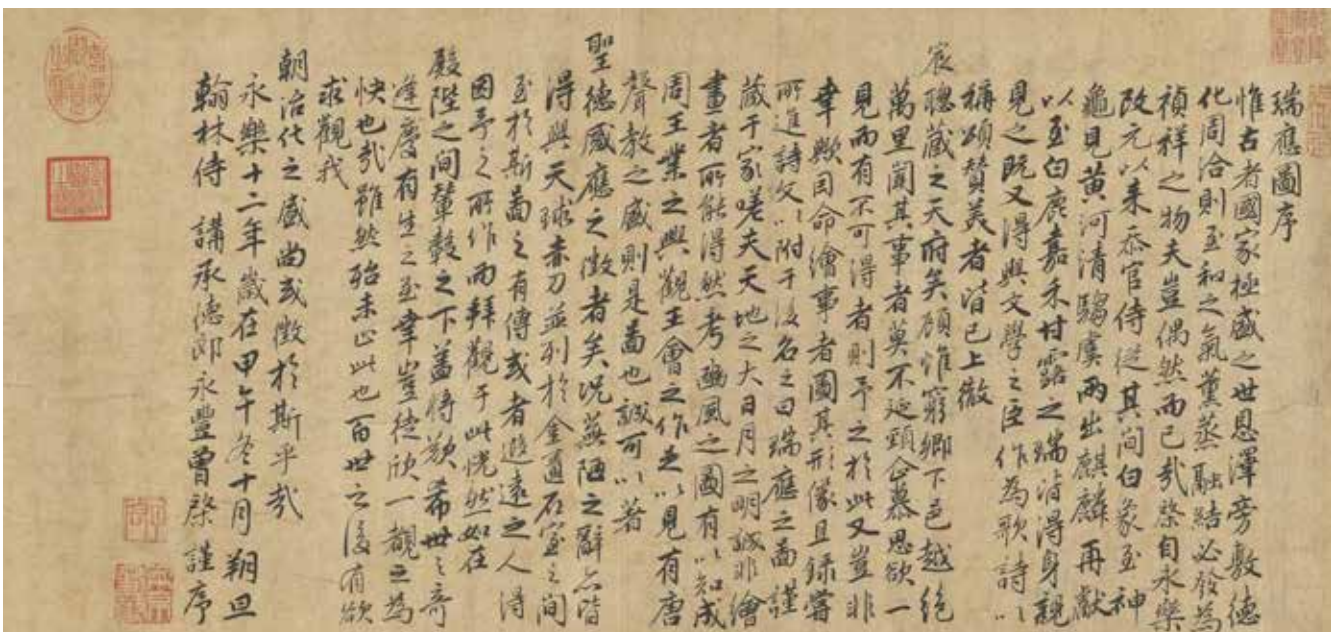 瑞應圖序
惟古者國家極盛之世恩澤旁敷德
化周洽則至和之氣薰蒸融結必發為
禎祥之物夫豈偶然而已哉棨自永樂
改元以來忝官侍從其間白象至神
龜見黃河清騶虞兩出麒麟再獻
以至白鹿嘉禾甘露之瑞皆得身親
見之既又得與文學之臣作為歌詩以
稱頌贊美者皆已上徹
宸聰藏之天府矣顧惟窮鄉下邑越絕
萬里聞其事者莫不延頸企慕思欲一
見而有不可得者則予之於此又豈非
幸歟因命繪事者圖其形像且錄嘗
所進詩文以附于後名之曰瑞應之圖謹
藏于家嗟夫天地之大日月之明誠非繪
畫者所能得然考豳風之圖有以知成
周王業之興觀王會之作足以見有唐
聲教之盛則是圖也誠可以著
聖德感應之徵者矣況蕪陋之辭亦皆
得與天球赤刀並列於金匱石室之間
至於斯圖之有傳或者遐遠之人得
因予之所作而拜觀于此恍然如在
殿陛之間輦轂之下蓋將欲希世之奇
逢慶有生之至幸豈徒欣一觀之為
快也哉雖然殆未止此也百世之後有欲
求觀我
朝治化之盛尚或徵於斯乎哉
永樂十二年歲在甲午冬十月朔旦
翰林侍講承德郎永豐曾棨謹序